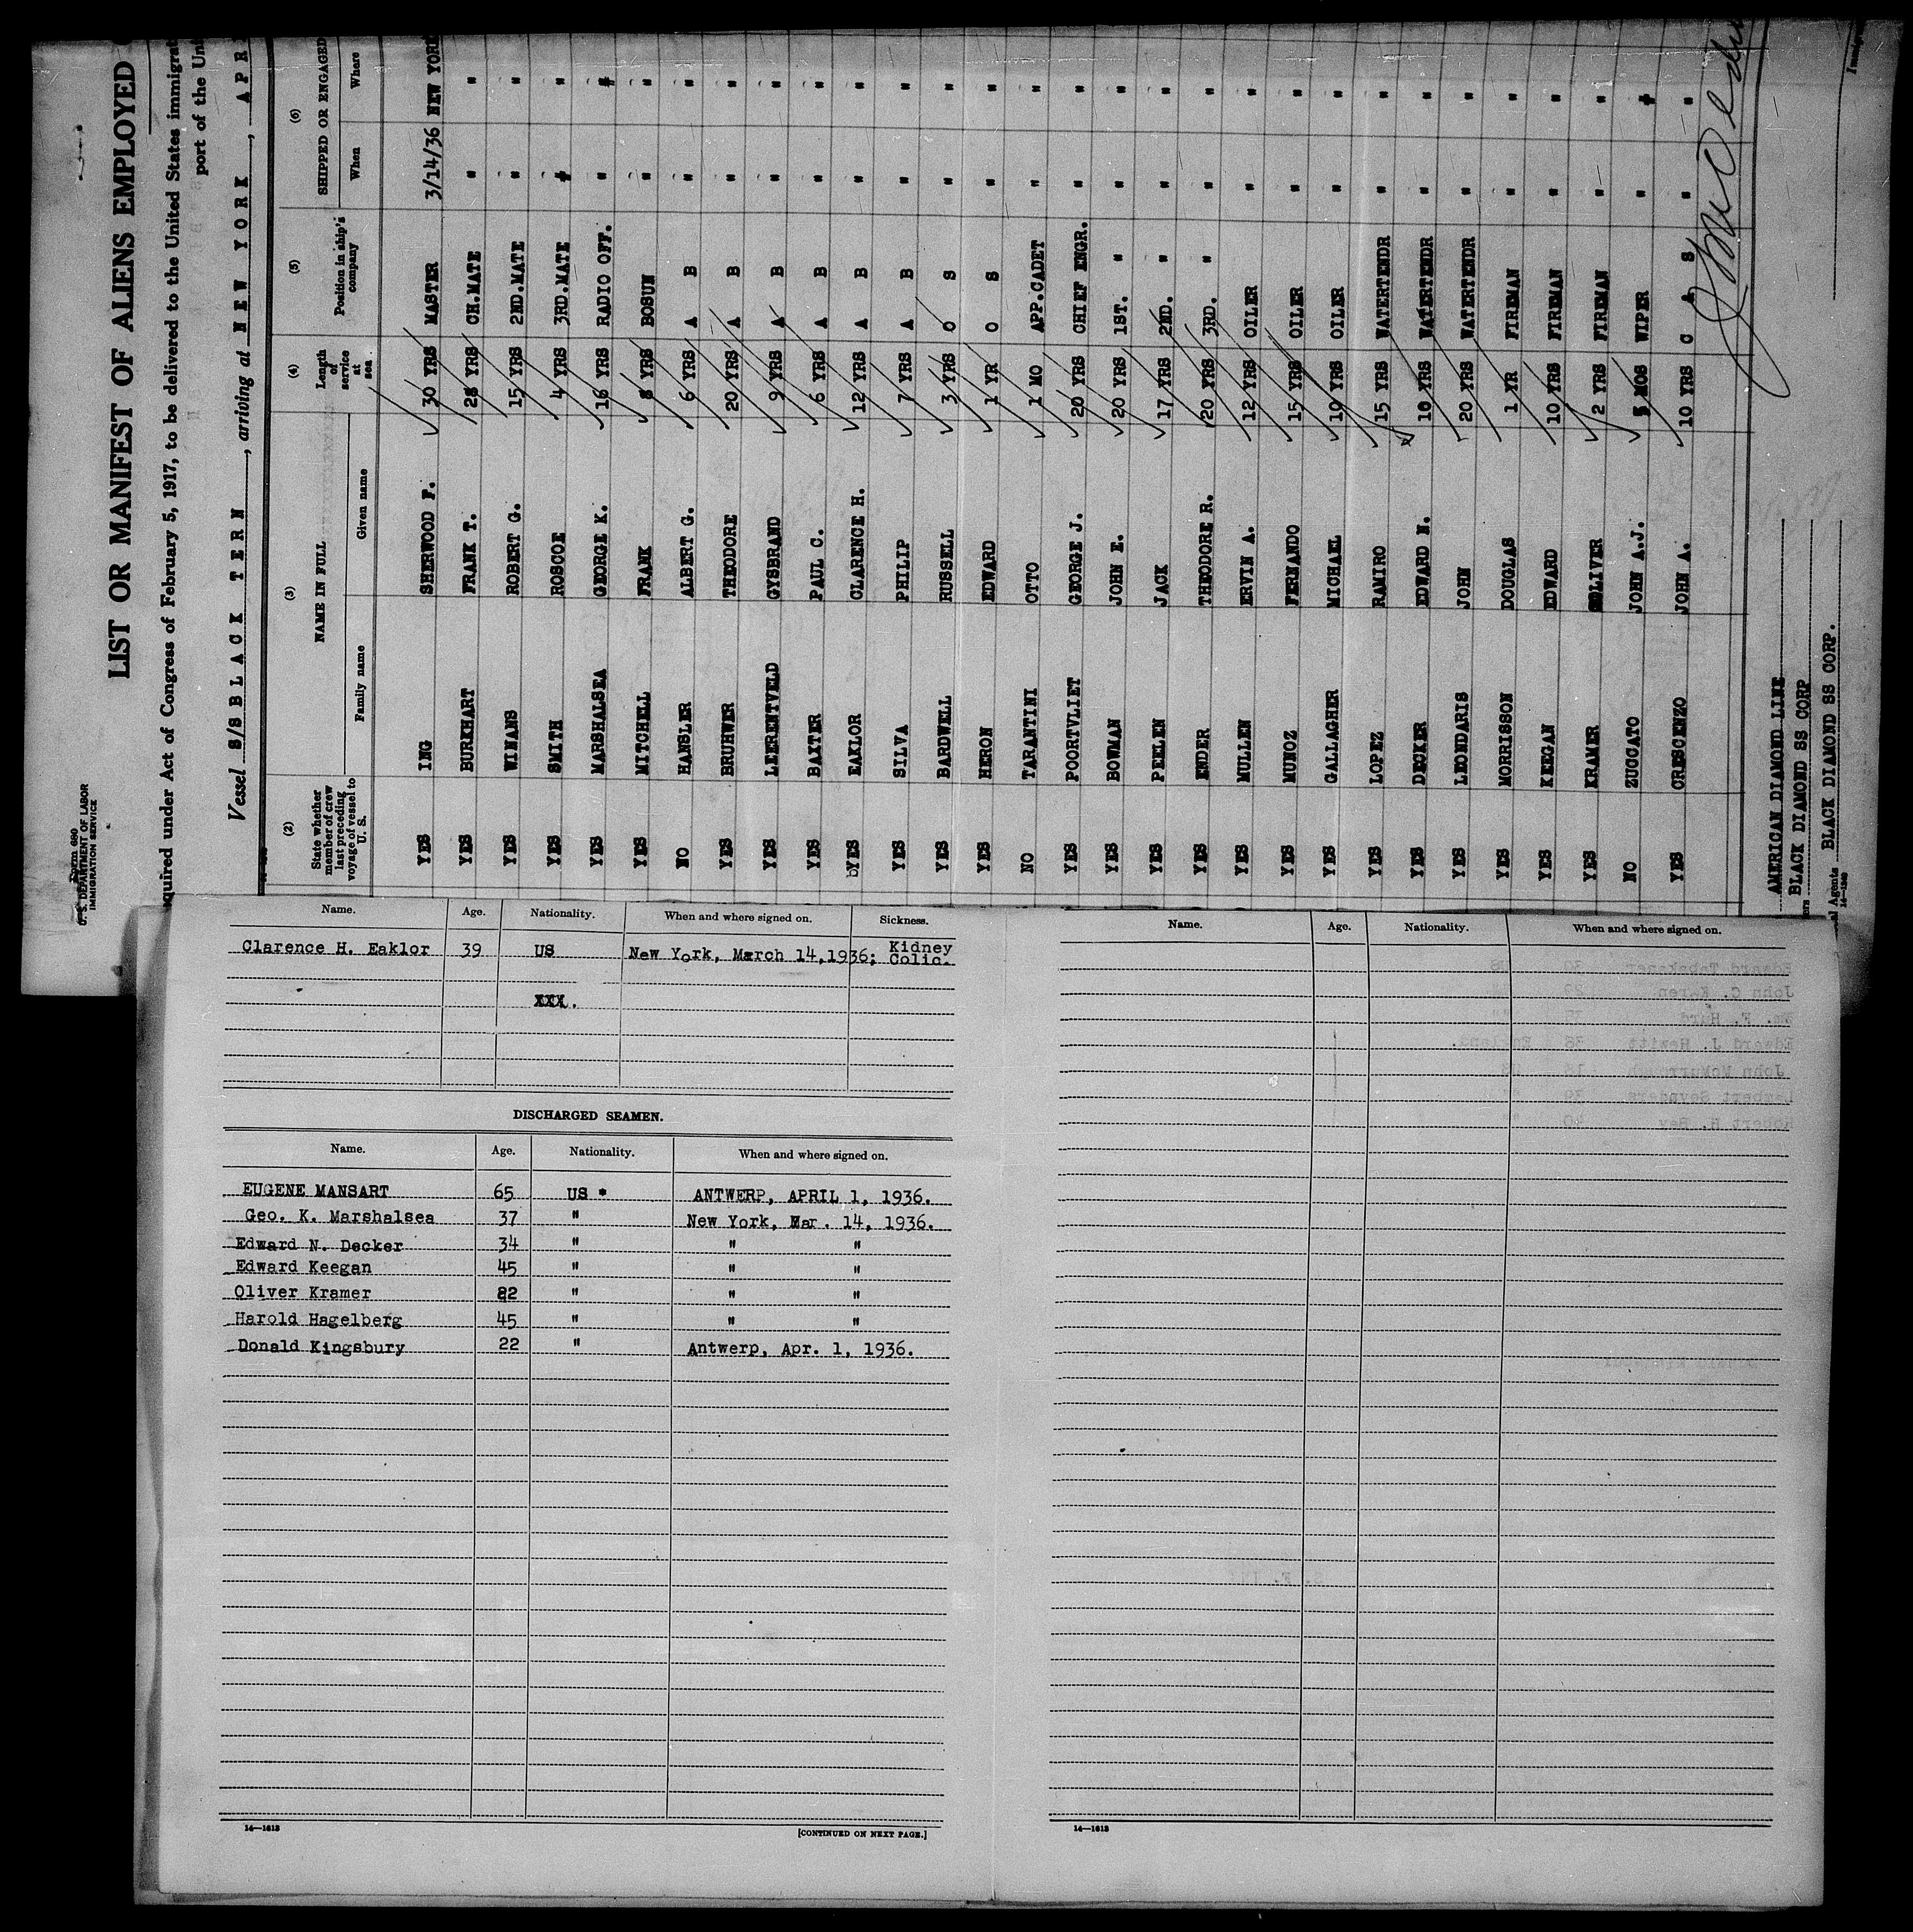 Form 680
U. S. DEPARTMENT OF LABOR
IMMIGRATION SERVICE
LIST OR MANIFEST OF ALIENS EMPLOYED
equired under Act of Congress of February 5, 1917, to be delivered to the United States immigrat
port of the Uni
Vessel S/S BLACK TERN, arriving at NEW YORK, APR
(2) (3) (4) (5) (6)
State whether member of crew last preceding voyage of vessel to U. S. NAME IN FULL Length of service at sea Position in ship's company SHIPPED OR ENGAGED
Family name Given name When Where
YES ING SHERWOOD F. 30 YRS MASTER 3/14/36 NEW YORK
YES BURKHART FRANK T. 28 YRS CH.MATE " "
YES WINANS ROBERT G. 15 YRS 2ND.MATE " "
YES SMITH ROSCOE 4 YRS 3RD.MATE " "
YES MARSHALSEA GEORGE K. 16 YRS RADIO OFF. " "
YES MITCHELL FRANK 8 YRS BOSUN " "
NO HANSLER ALBERT G. 6 YRS A B " "
YES BRUHWER THEODORE 20 YRS A B " "
YES LEERENTVELD GYSBRAND 9 YRS A B " "
YES BAXTER PAUL C. 6 YRS A B " "
YES EAKLOR CLARENCE H. 12 YRS A B " "
YES SILVA PHILIP 7 YRS A B " "
YES BARDWELL RUSSELL 3 YRS O S " "
YES HERON EDWARD 1 YR O S " "
NO TARANTINI OTTO 1 MO APP.CADET " "
YES POORTVLIET GEORGE J. 20 YRS CHIEF ENGR. " "
YES BOWMAN JOHN E. 20 YRS 1ST. " " "
YES PEELEN JACK 17 YRS 2ND. " " "
YES ENDER THEODORE R. 20 YRS 3RD. " " "
YES MULLEN ERVIN A. 12 YRS OILER " "
YES MUNOZ FERNANDO 15 YRS OILER " "
YES GALLAGHER MICHAEL 10 YRS OILER " "
YES LOPEZ RAMIRO 15 YRS WATERTENDR " "
YES DECKER EDWARD N. 10 YRS WATERTENDR " "
YES LEONDARIS JOHN 20 YRS WATERTENDR " "
YES MORRISSON DOUGLAS 1 YR FIREMAN " "
YES KEEGAN EDWARD 10 YRS FIREMAN " "
YES KRAMER OLIVER 2 YRS FIREMAN " "
NO ZUCCATO JOHN A.J. MOS WIPER " "
YES CRESCENZO JOHN A. 10 YRS C & S " "
AMERICAN DIAMOND LINE
BLACK DIAMOND SS CORP
al Agents BLACK DIAMOND SS CORP.
14—1240
Name. Age. Nationality. When and where signed on. Sickness.
Clarence H. Eaklor 39 US New York, March 14,1936; Kidney Colic.
XXX.
DISCHARGED SEAMEN.
Name. Age. Nationality. When and where signed on.
EUGENE MANSART 65 US ANTWERP, APRIL 1, 1936.
Geo. K. Marshalsea 37 " New York, Mar. 14, 1936.
Edward N. Decker 34 " " "
Edward Keegan 45 " " "
Oliver Kramer 22 " " "
Harold Hagelberg 45 " " "
Donald Kingsbury 22 " Antwerp, Apr. 1, 1936.
14—1613
[CONTINUED ON NEXT PAGE.]
Name. Age. Nationality. When and where signed on.
14—1613